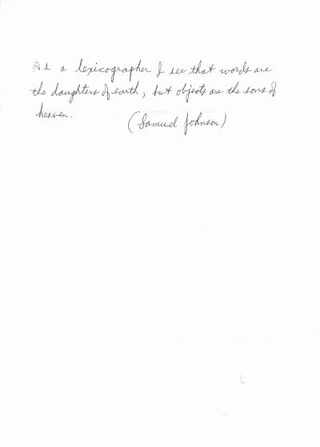 As a lexicographer I see that words are
the daughters of earth, but objects are the sons of
heaven.
(Samuel Johnson)